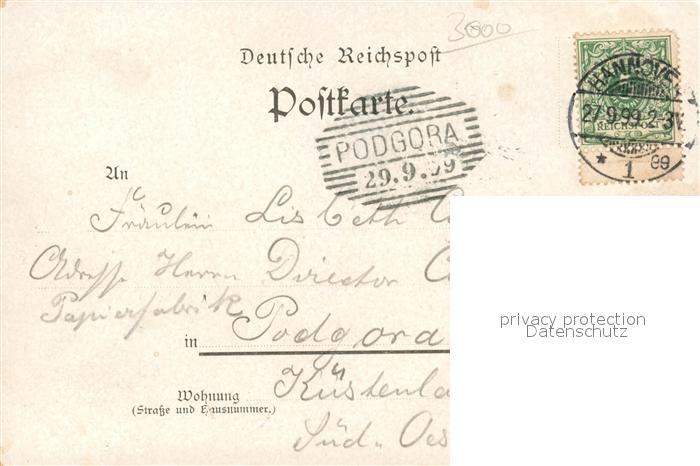 3000
Deutsche Reichspost
Postkarte.
HANNOVE
27.9.99.2-3N.
REICHSPOST
* 1 99
PODGORA
29.9.99
An
Fräulein Lisbeth C
Adresse Herrn Director C
Papierfabrik
in Podgora
Küstenla
Wohnung
(Straße und Hausnummer.)
Süd-Oes
privacy protection
Datenschutz